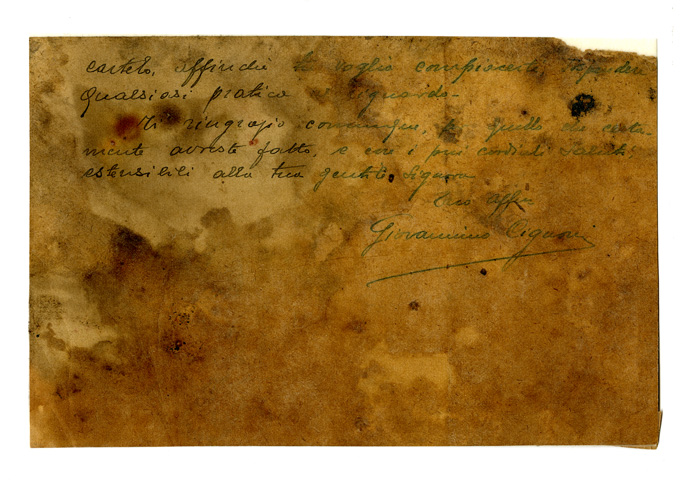 cartolo, affinchè te voglia compiacerti sospendere
qualsiasi pratica al riguardo-
Ti ringrazio comunque, di quello che certa-
mente avreste fatto, e con i più cordiali saluti,
estensibili alla tua gentile Signora
tuo aff.
Giovannino Cigarri